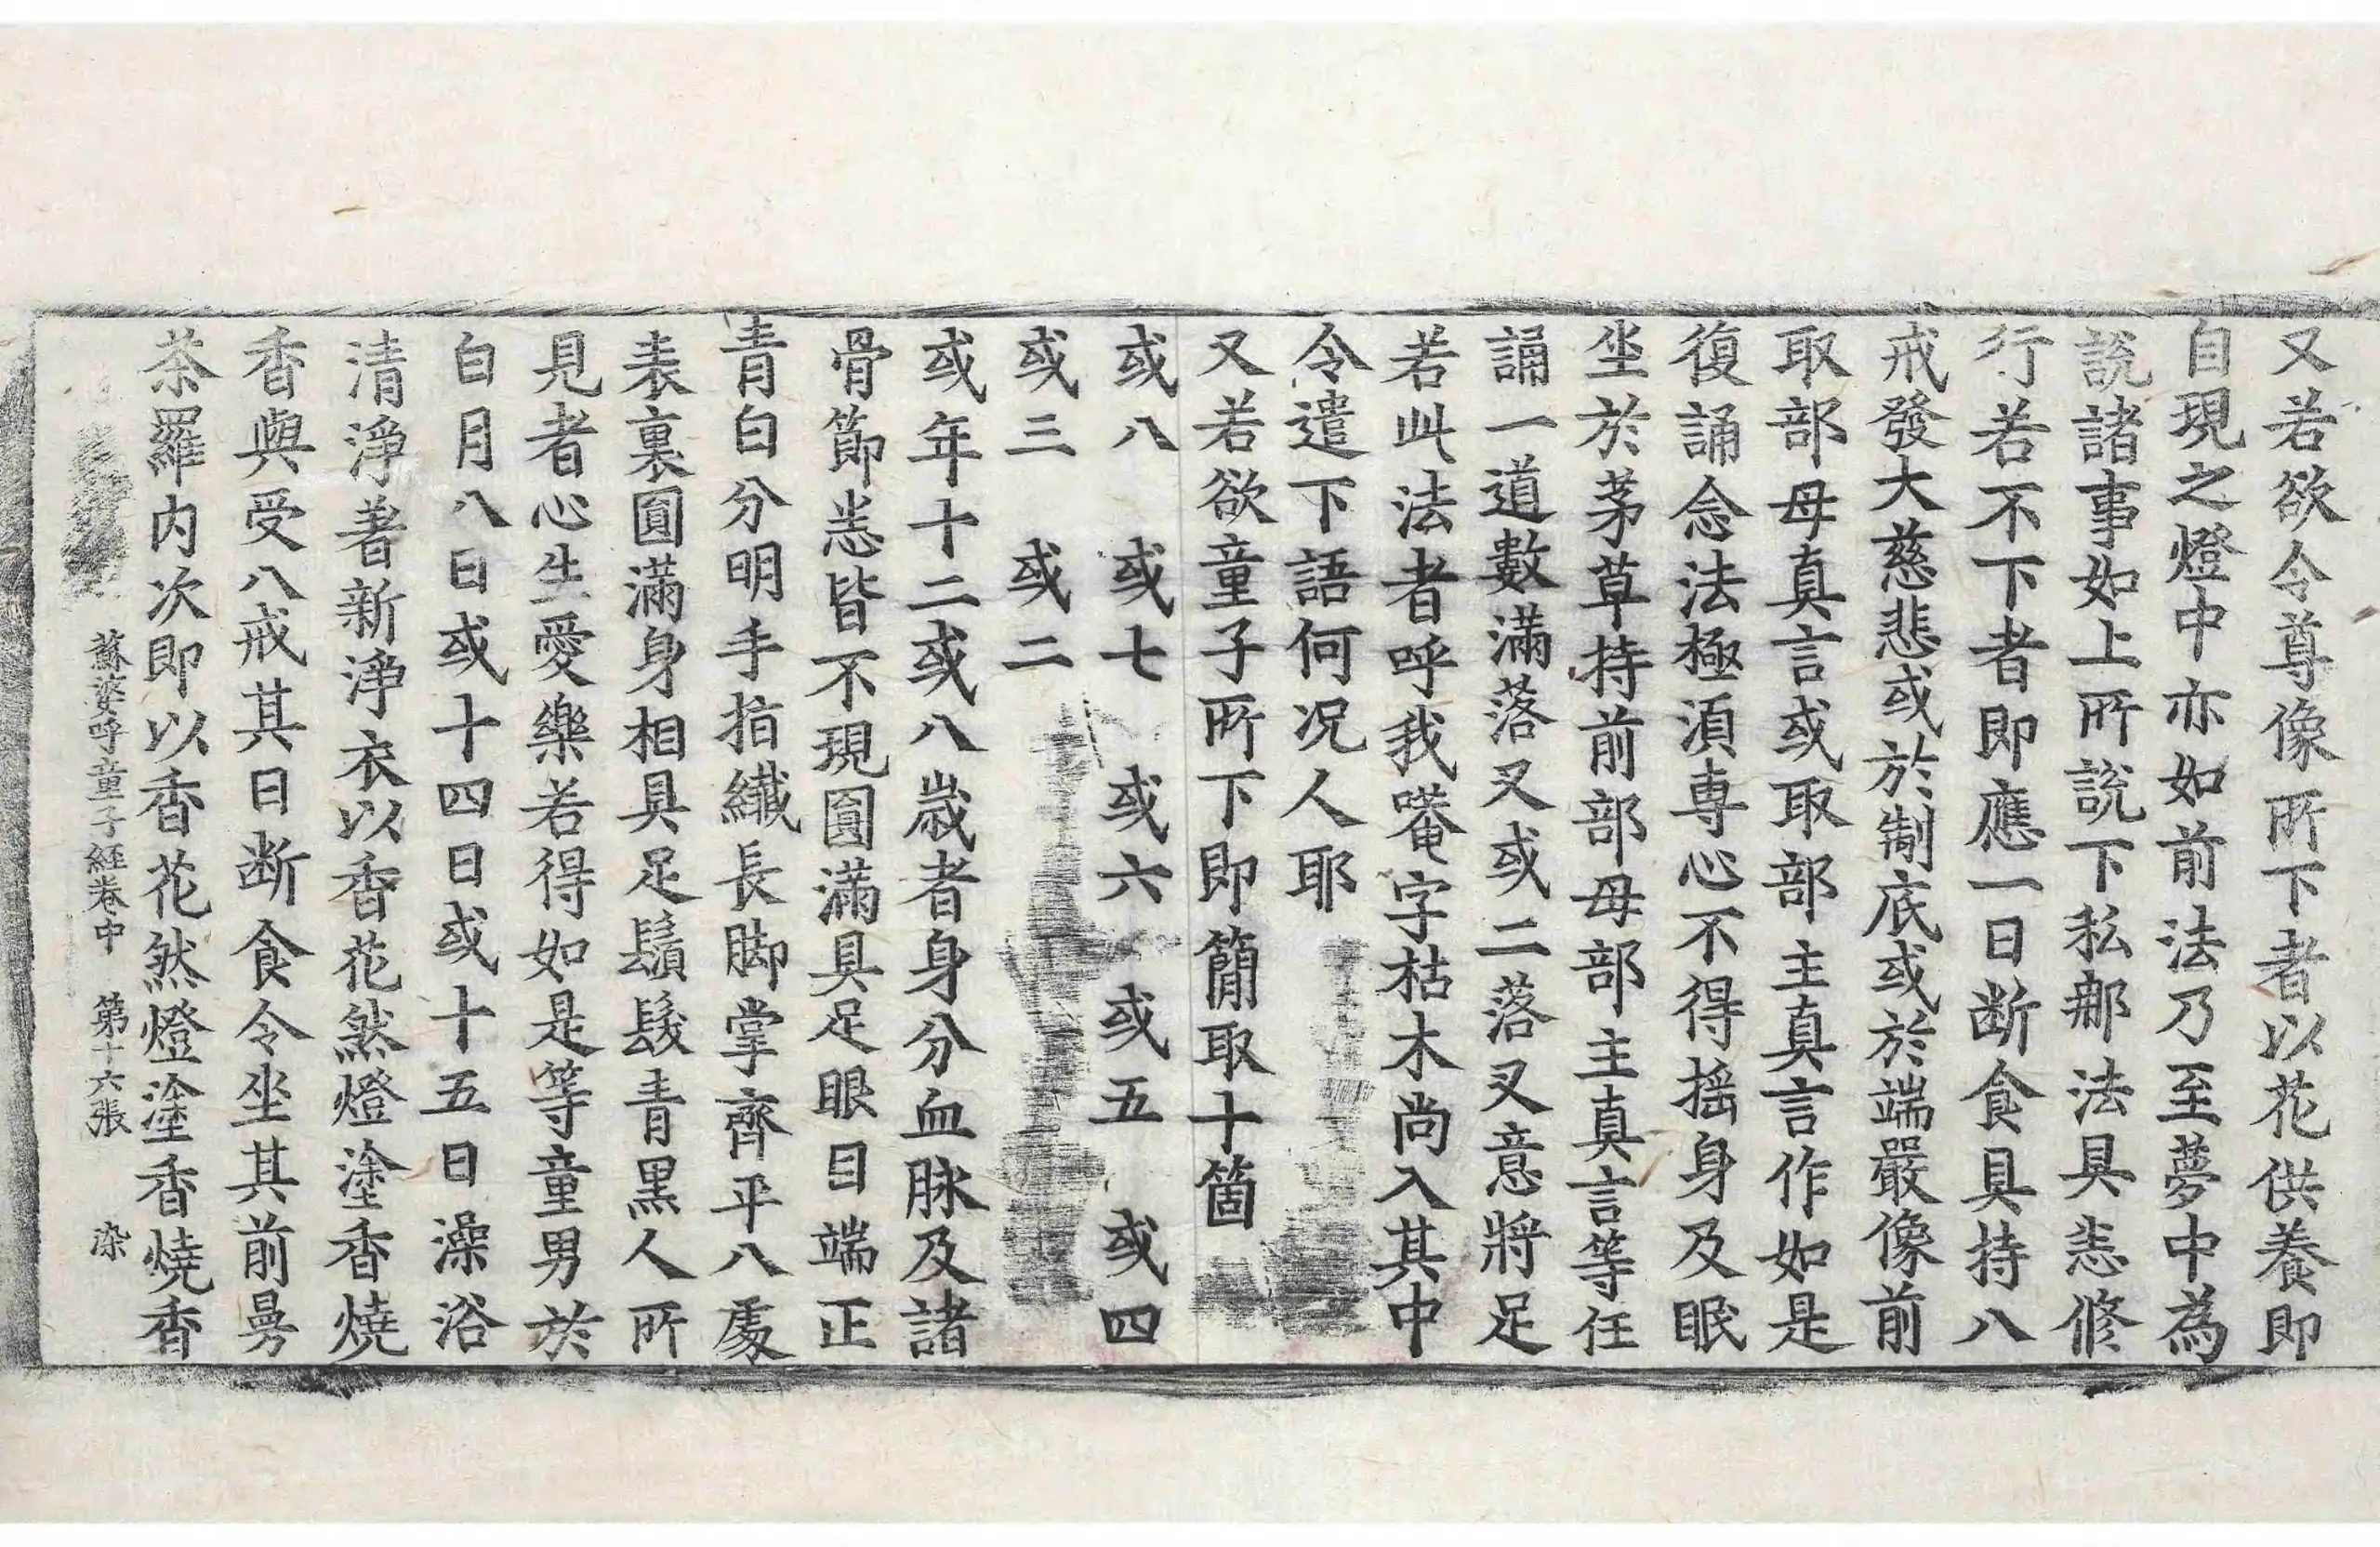 又若欲令尊像所下者以花供養即
自現之燈中亦如前法乃至夢中為
說諸事如上所說下私那法具悉修
行若不下者即應一日断食具持八
戒發大慈悲或於制底或於端嚴像前
取部母真言或取部主真言作如是
復誦念法極湏專心不得揺身及眠
坐於茅草持前部母部主真言等任
誦一道數滿落叉或二落叉意將足
若此法者呼我唵字枯木尚入其中
令遣下語何况人耶
又若欲童子所下即簡取十箇
或八 或七 或六 或五 或四
或三 或二
或年十二或八歳者身分血脉及諸
骨節悉皆不現圎滿具足眼目端正
青白分明手指纖長脚掌齊平八處
表裏圎滿身相具足鬚髮青黑人所
見者心生愛樂若得如是等童男於
白月八日或十四日或十五日澡浴
清淨著新淨衣以香花然燈塗香燒
香與受八戒其日断食令坐其前曼
茶羅内次即以香花然燈塗香燒香
蘇婆呼童子經卷中 第十六張 染